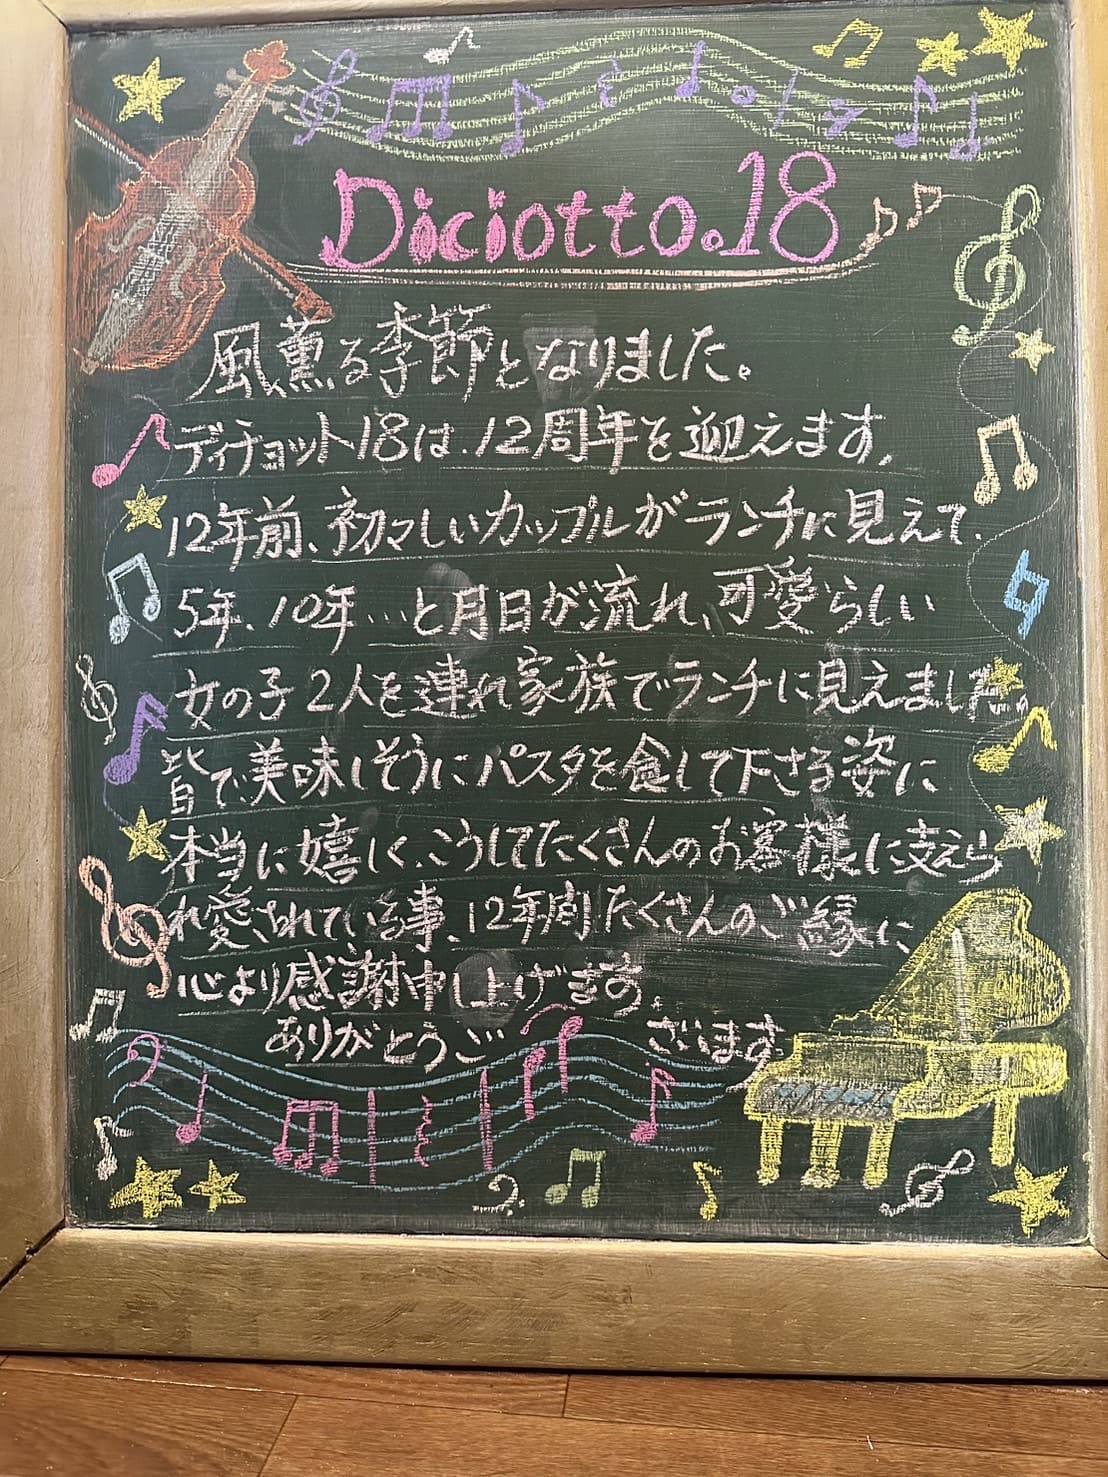 Diciotto.18
風薫る季節となりました。
ディチョット18は、12周年を迎えます。
12年前、初々しいカップルがランチに見えて、
5年、10年…と月日が流れ、可愛らしい
女の子2人を連れ家族でランチに見えました。
皆で美味しそうにパスタを食して下さる姿に
本当に嬉しく、こうしてたくさんのお客様に支えら
れ愛されている事、12年間たくさんのご縁に
心より感謝申し上げます。
ありがとうございます。